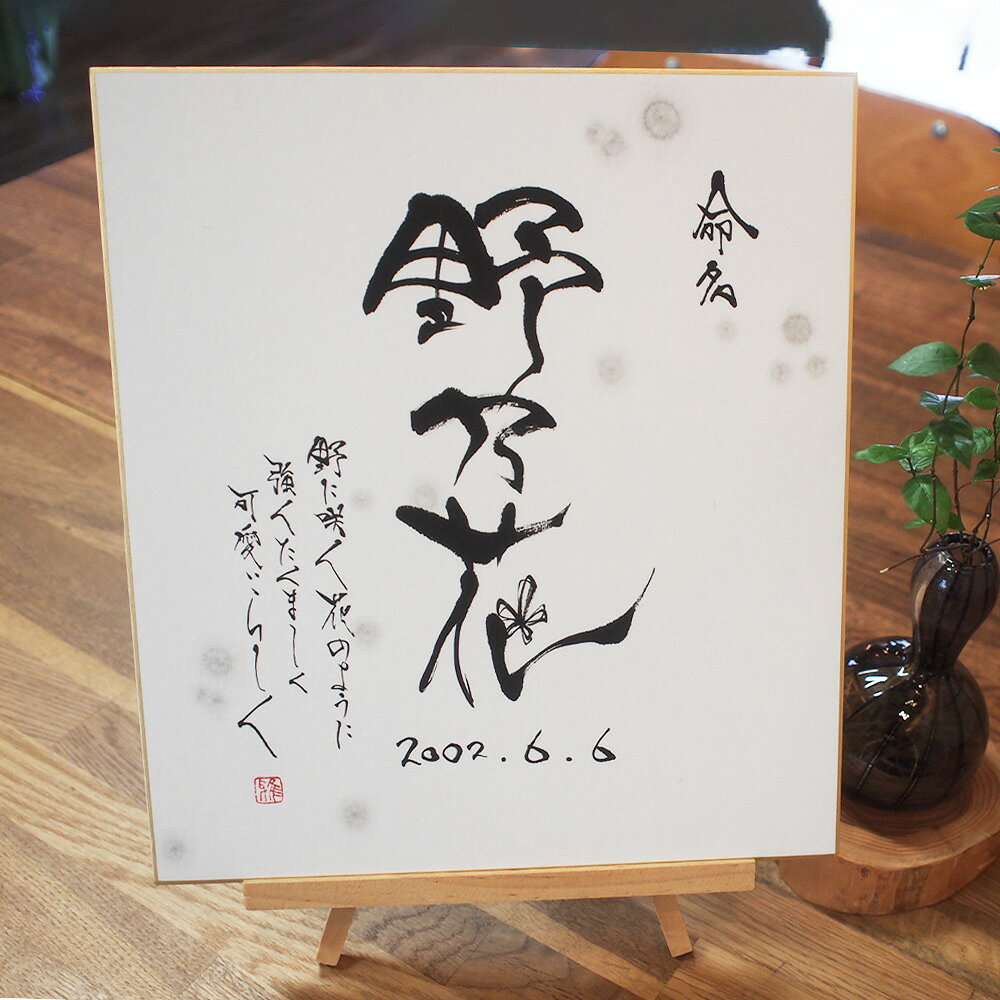 命名
野乃花
野に咲く花のように
強くたくましく
可愛いらしく
2002.6.6